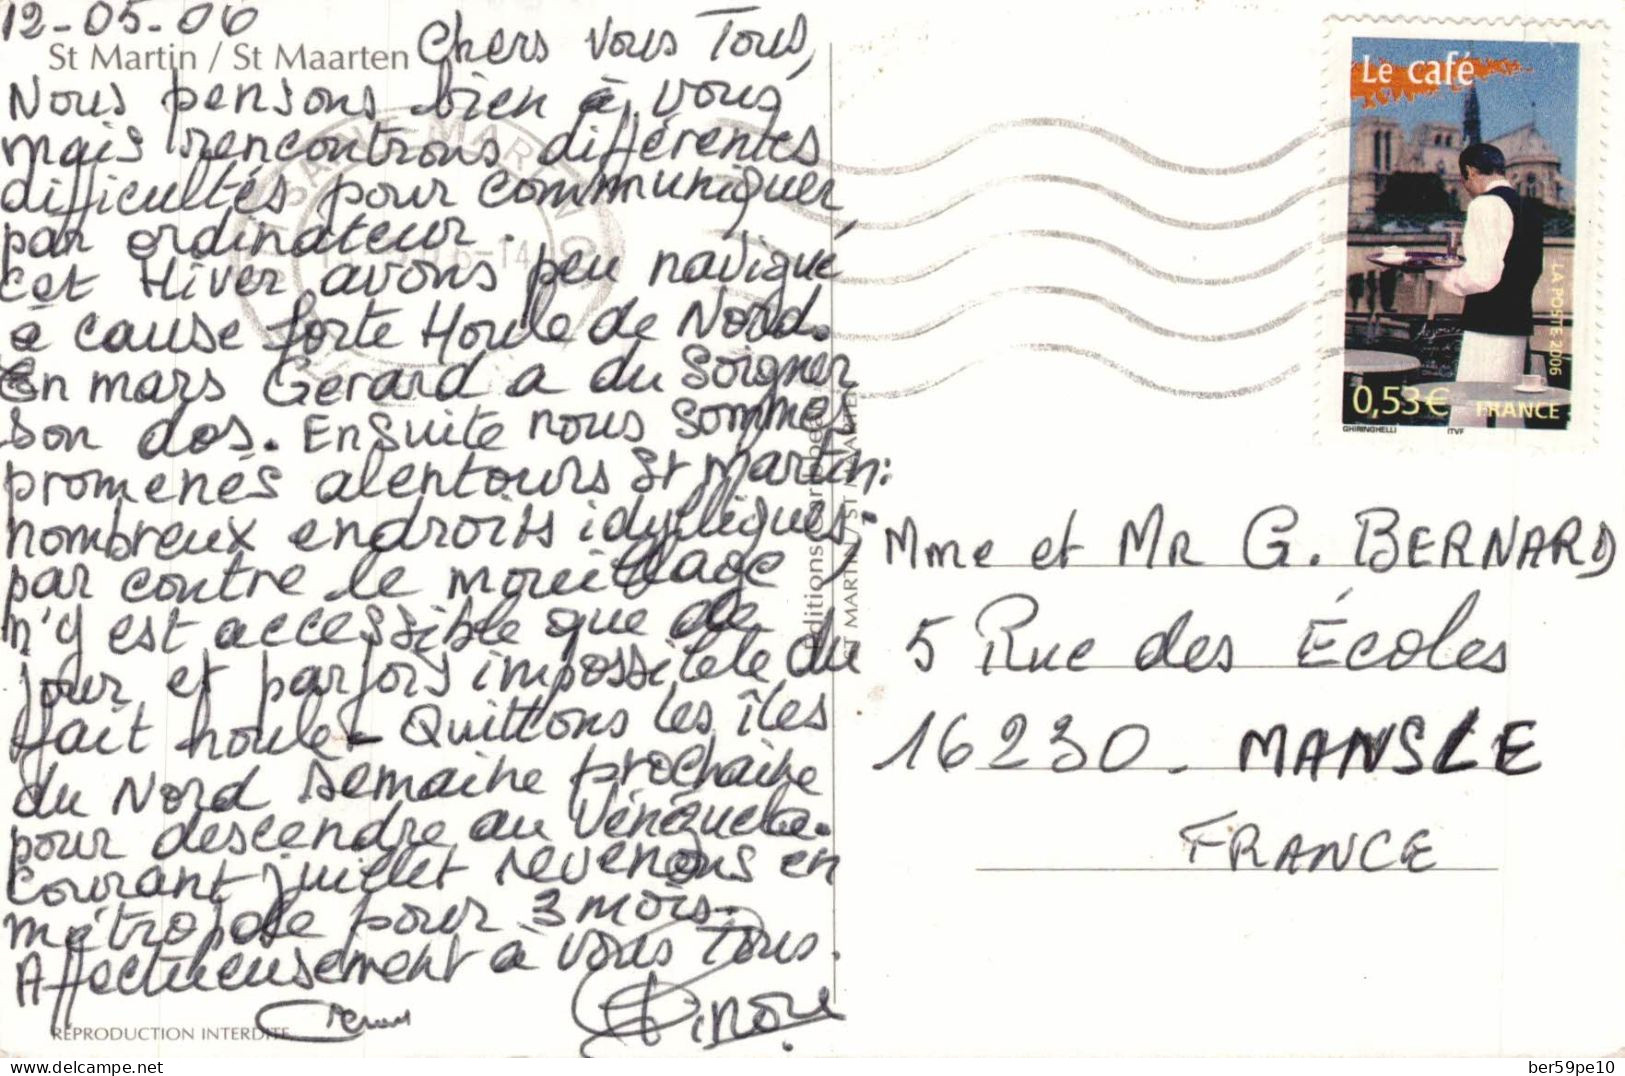 12-05-06
St Martin / St Maarten
Chers vous Tous,
Nous pensons bien à vous
mais rencontrons différentes
difficultés pour communiquer
par ordinateur.
Cet Hiver avons peu navigué
à cause forte Houle de Nord.
En mars Gerard a du soigner
son dos. Ensuite nous sommes
promenés alentours St Martin:
nombreux endroits idylliques,
par contre le mouillage
n'y est accessible que de
jour et parfois impossible du
fait houle - Quittons les îles
du Nord semaine prochaine
pour descendre au Vénézuela.
Courant juillet revenons en
métropole pour 3 mois.
Affectueusement à vous Tous.
REPRODUCTION INTERDITE
ST MARTIN / ST MAARTEN
SAINT MARTIN
Le café
LA POSTE 2006
0,53€ FRANCE
GHIRINGHELLI ITVF
Mme et MR G. BERNARD
5 Rue des Écoles
16230 - MANSLE
FRANCE
delcampe.net
ber59pe10